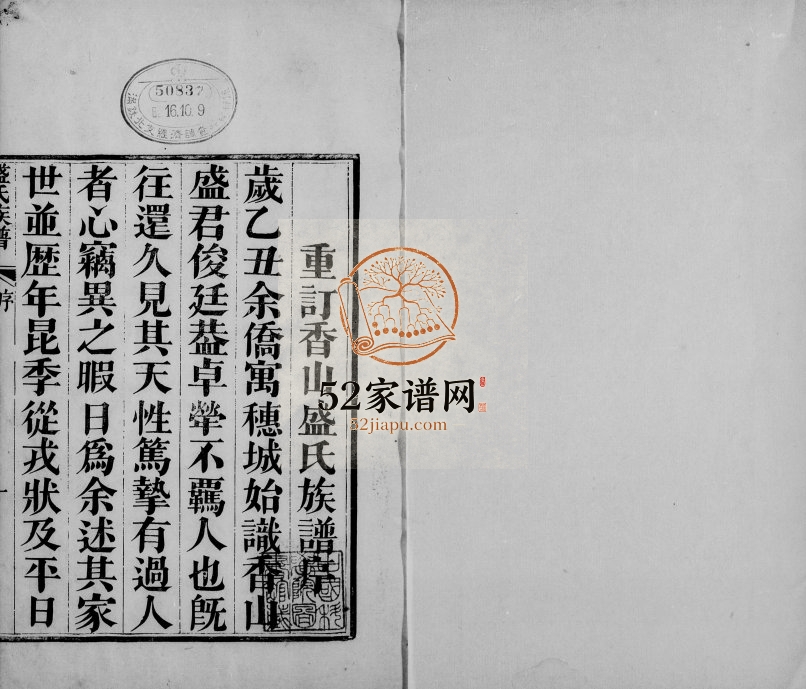 重訂香山盛氏族譜序
歲乙丑余僑寓穗城始識香山
盛君俊廷葢卓犖不羈人也旣
往還久見其天性篤摯有過人
者心竊異之暇日爲余述其家
世並歴年昆季從戎狀及平日
盛氏族譜
序
一
50832
16.10.9
52家谱网
52jiapu.com